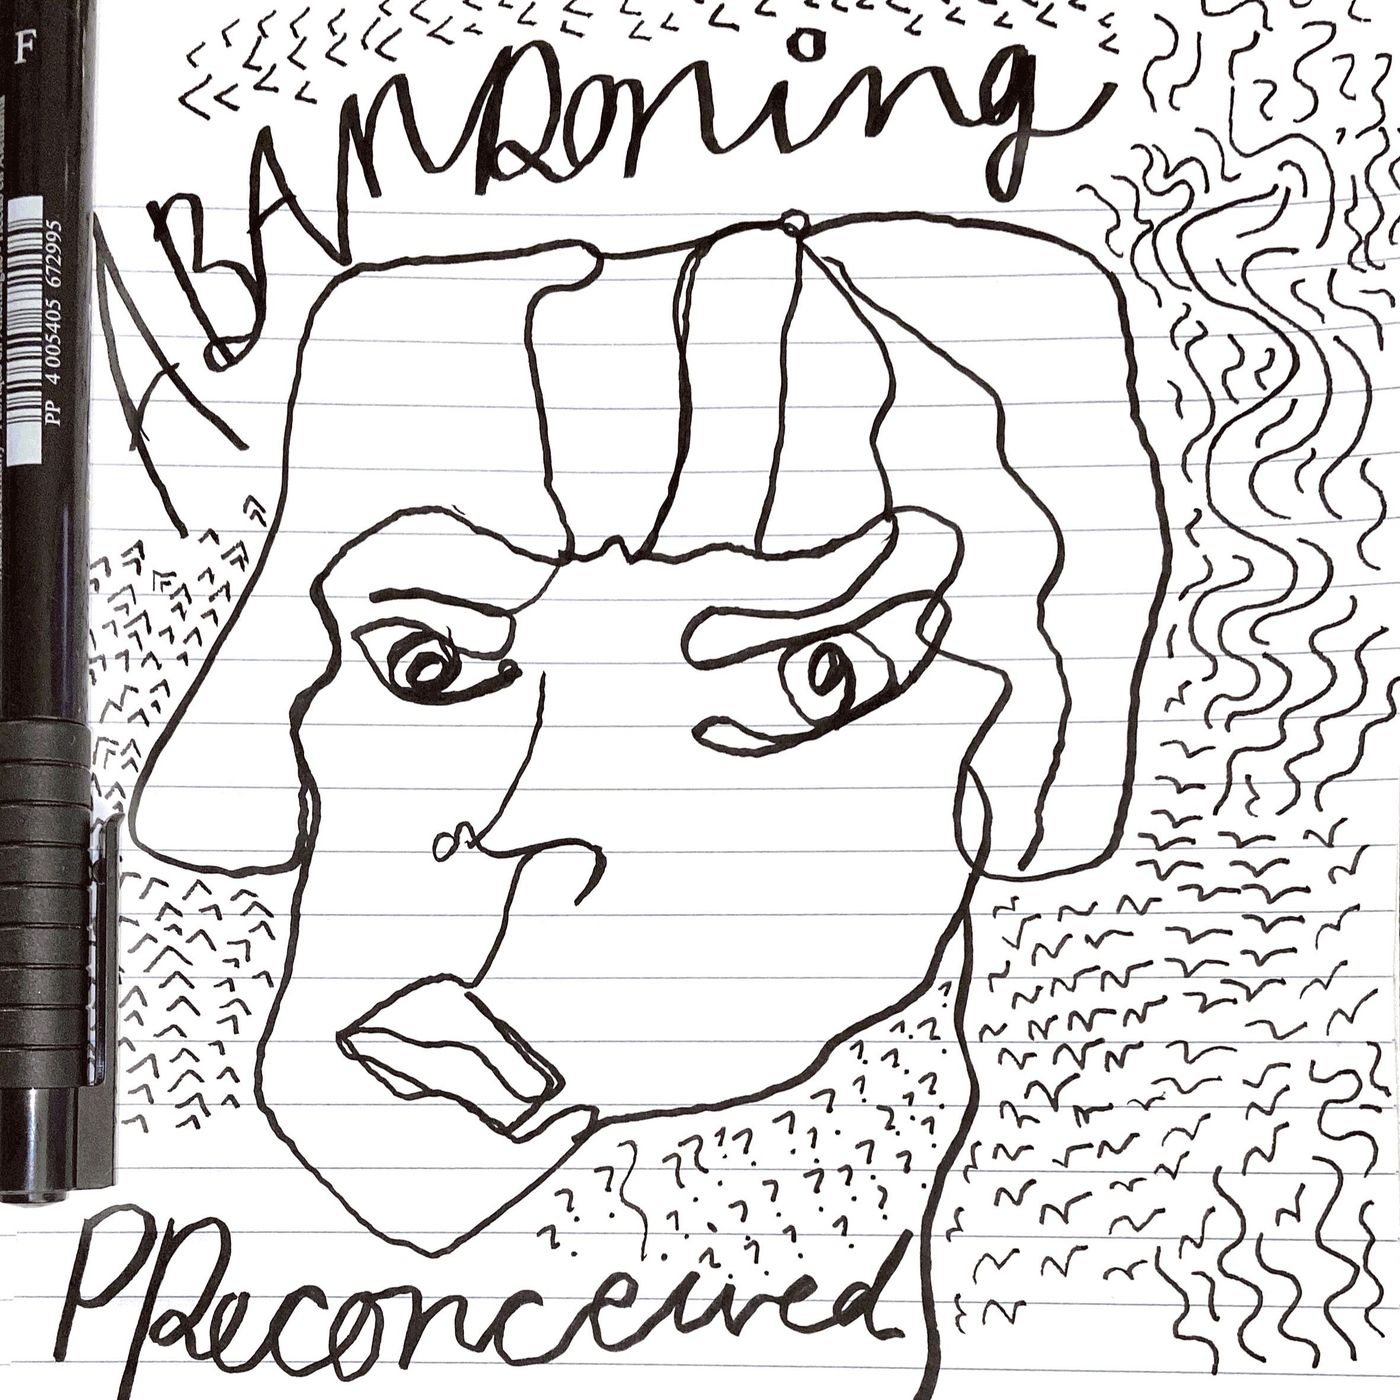 F
PP 4 005405 672995
ABANDoning
PReconceived